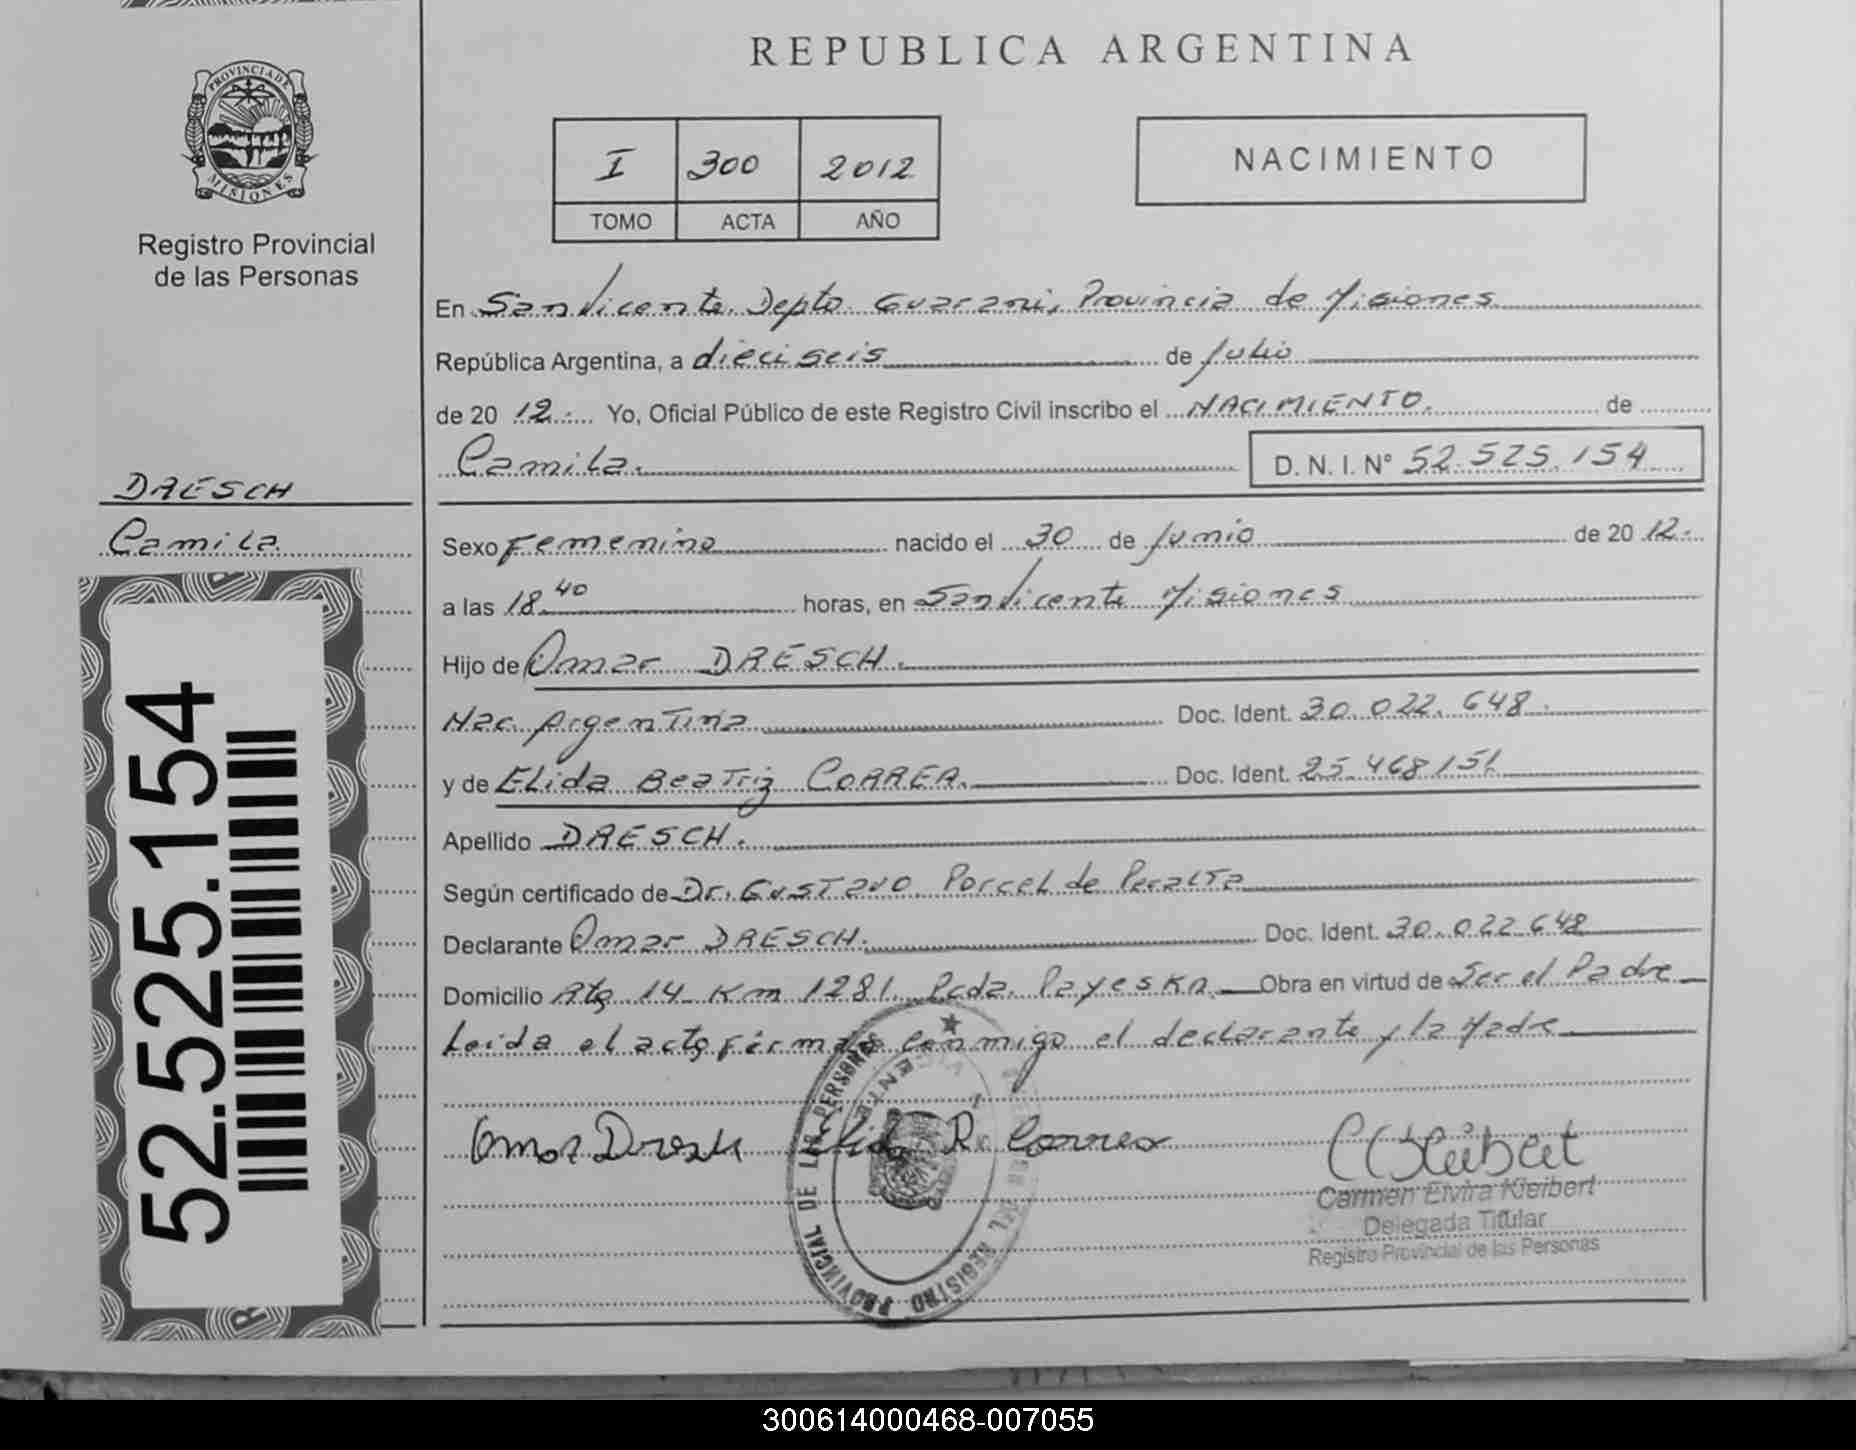 REPUBLICA ARGENTINA
PROVINCIA DE
MISIONES
Registro Provincial
de las Personas
I 300 2012
TOMO ACTA AÑO
NACIMIENTO
En San Vicente Depto. Guarani, Provincia de Misiones
República Argentina, a dieciseis de Julio
de 20 12.- Yo, Oficial Público de este Registro Civil inscribo el NACIMIENTO. de
Camila. D. N. I. Nº 52.525.154
DRESCH
Camila
Sexo Femenino nacido el 30 de Junio de 20 12.-
a las 18.40 horas, en San Vicente Misiones
Hijo de Omar DRESCH.
Nac. Argentina Doc. Ident. 30.022.648.
y de Elida Beatriz CORREA. Doc. Ident. 25.468.151.
Apellido DRESCH.
Según certificado de Dr. Gustavo Porcel de Peralta
Declarante Omar DRESCH. Doc. Ident. 30.022.648
Domicilio Rta 14 Km 1281. Pcda. Obra en virtud de Ser el Padre
Leida el acta firman conmigo el declarante y la Madre
Omar Dresch Elida B. Correa
Carmen Elvira Kleibert
Delegada Titular
Registro Provincial de las Personas
PROVINCIAL DE LAS PERSONAS
VICENTE
DEL REGISTRO
52.525.154
300614000468-007055